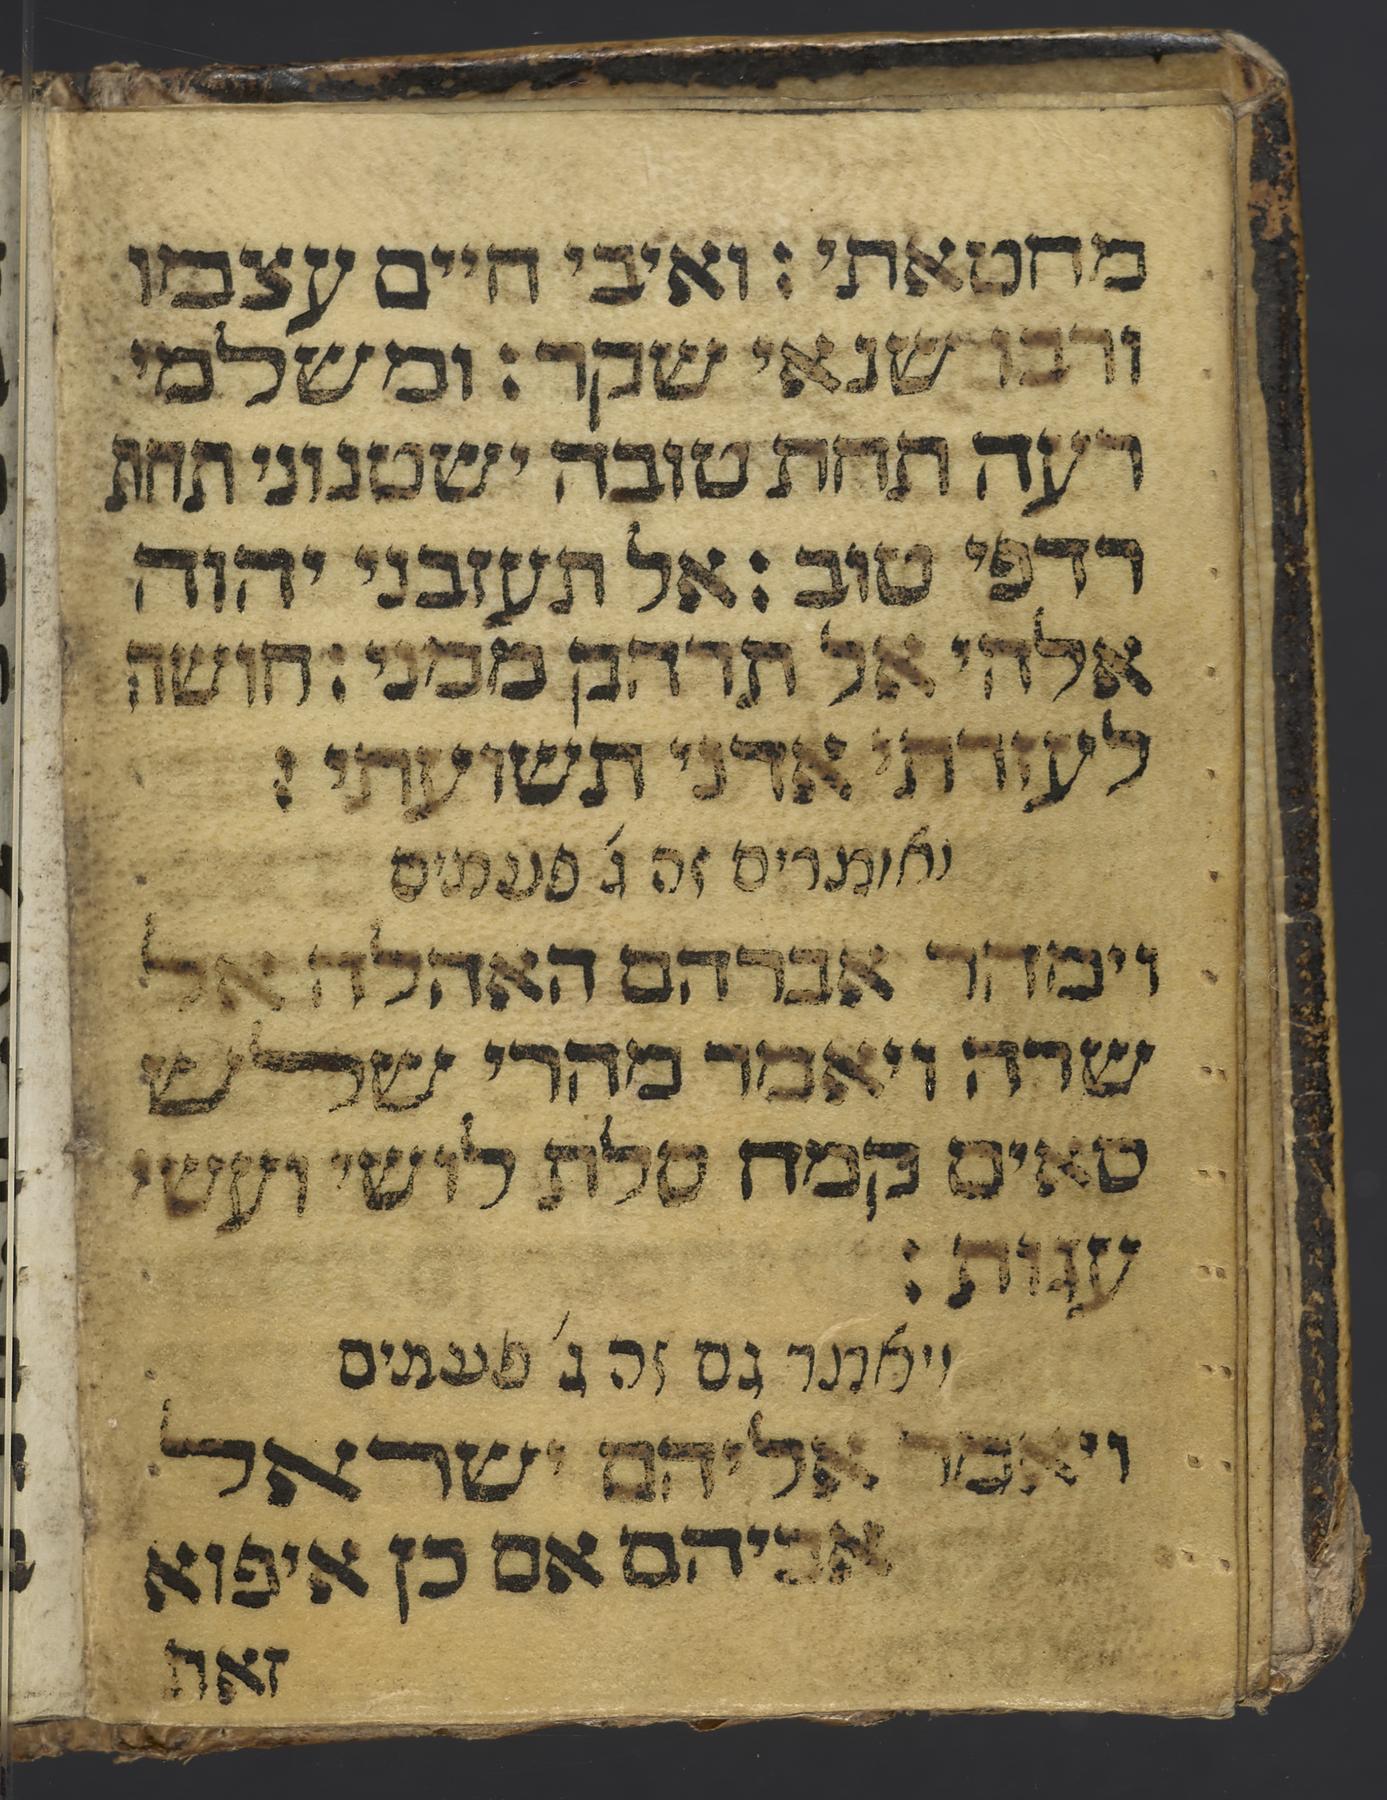 מחטאתי : ואיבי חיים עצמו
ורבו שנאי שקר : ומשלמי
רעה תחת טובה ישטנוני תחת
רדפי טוב : אל תעזבני יהוה
אלהי אל תרחק ממני : חושה
לעזרתי אדני תשועתי :
ואומרים זה ג' פעמים
וימהר אברהם האהלה אל
שרה ויאמר מהרי שלש
סאים קמח סלת לושי ועשי
ענות :
ויאמר גם זה ג' פעמים
ויאמר אליהם ישראל
אביהם אם כן איפוא
זאת